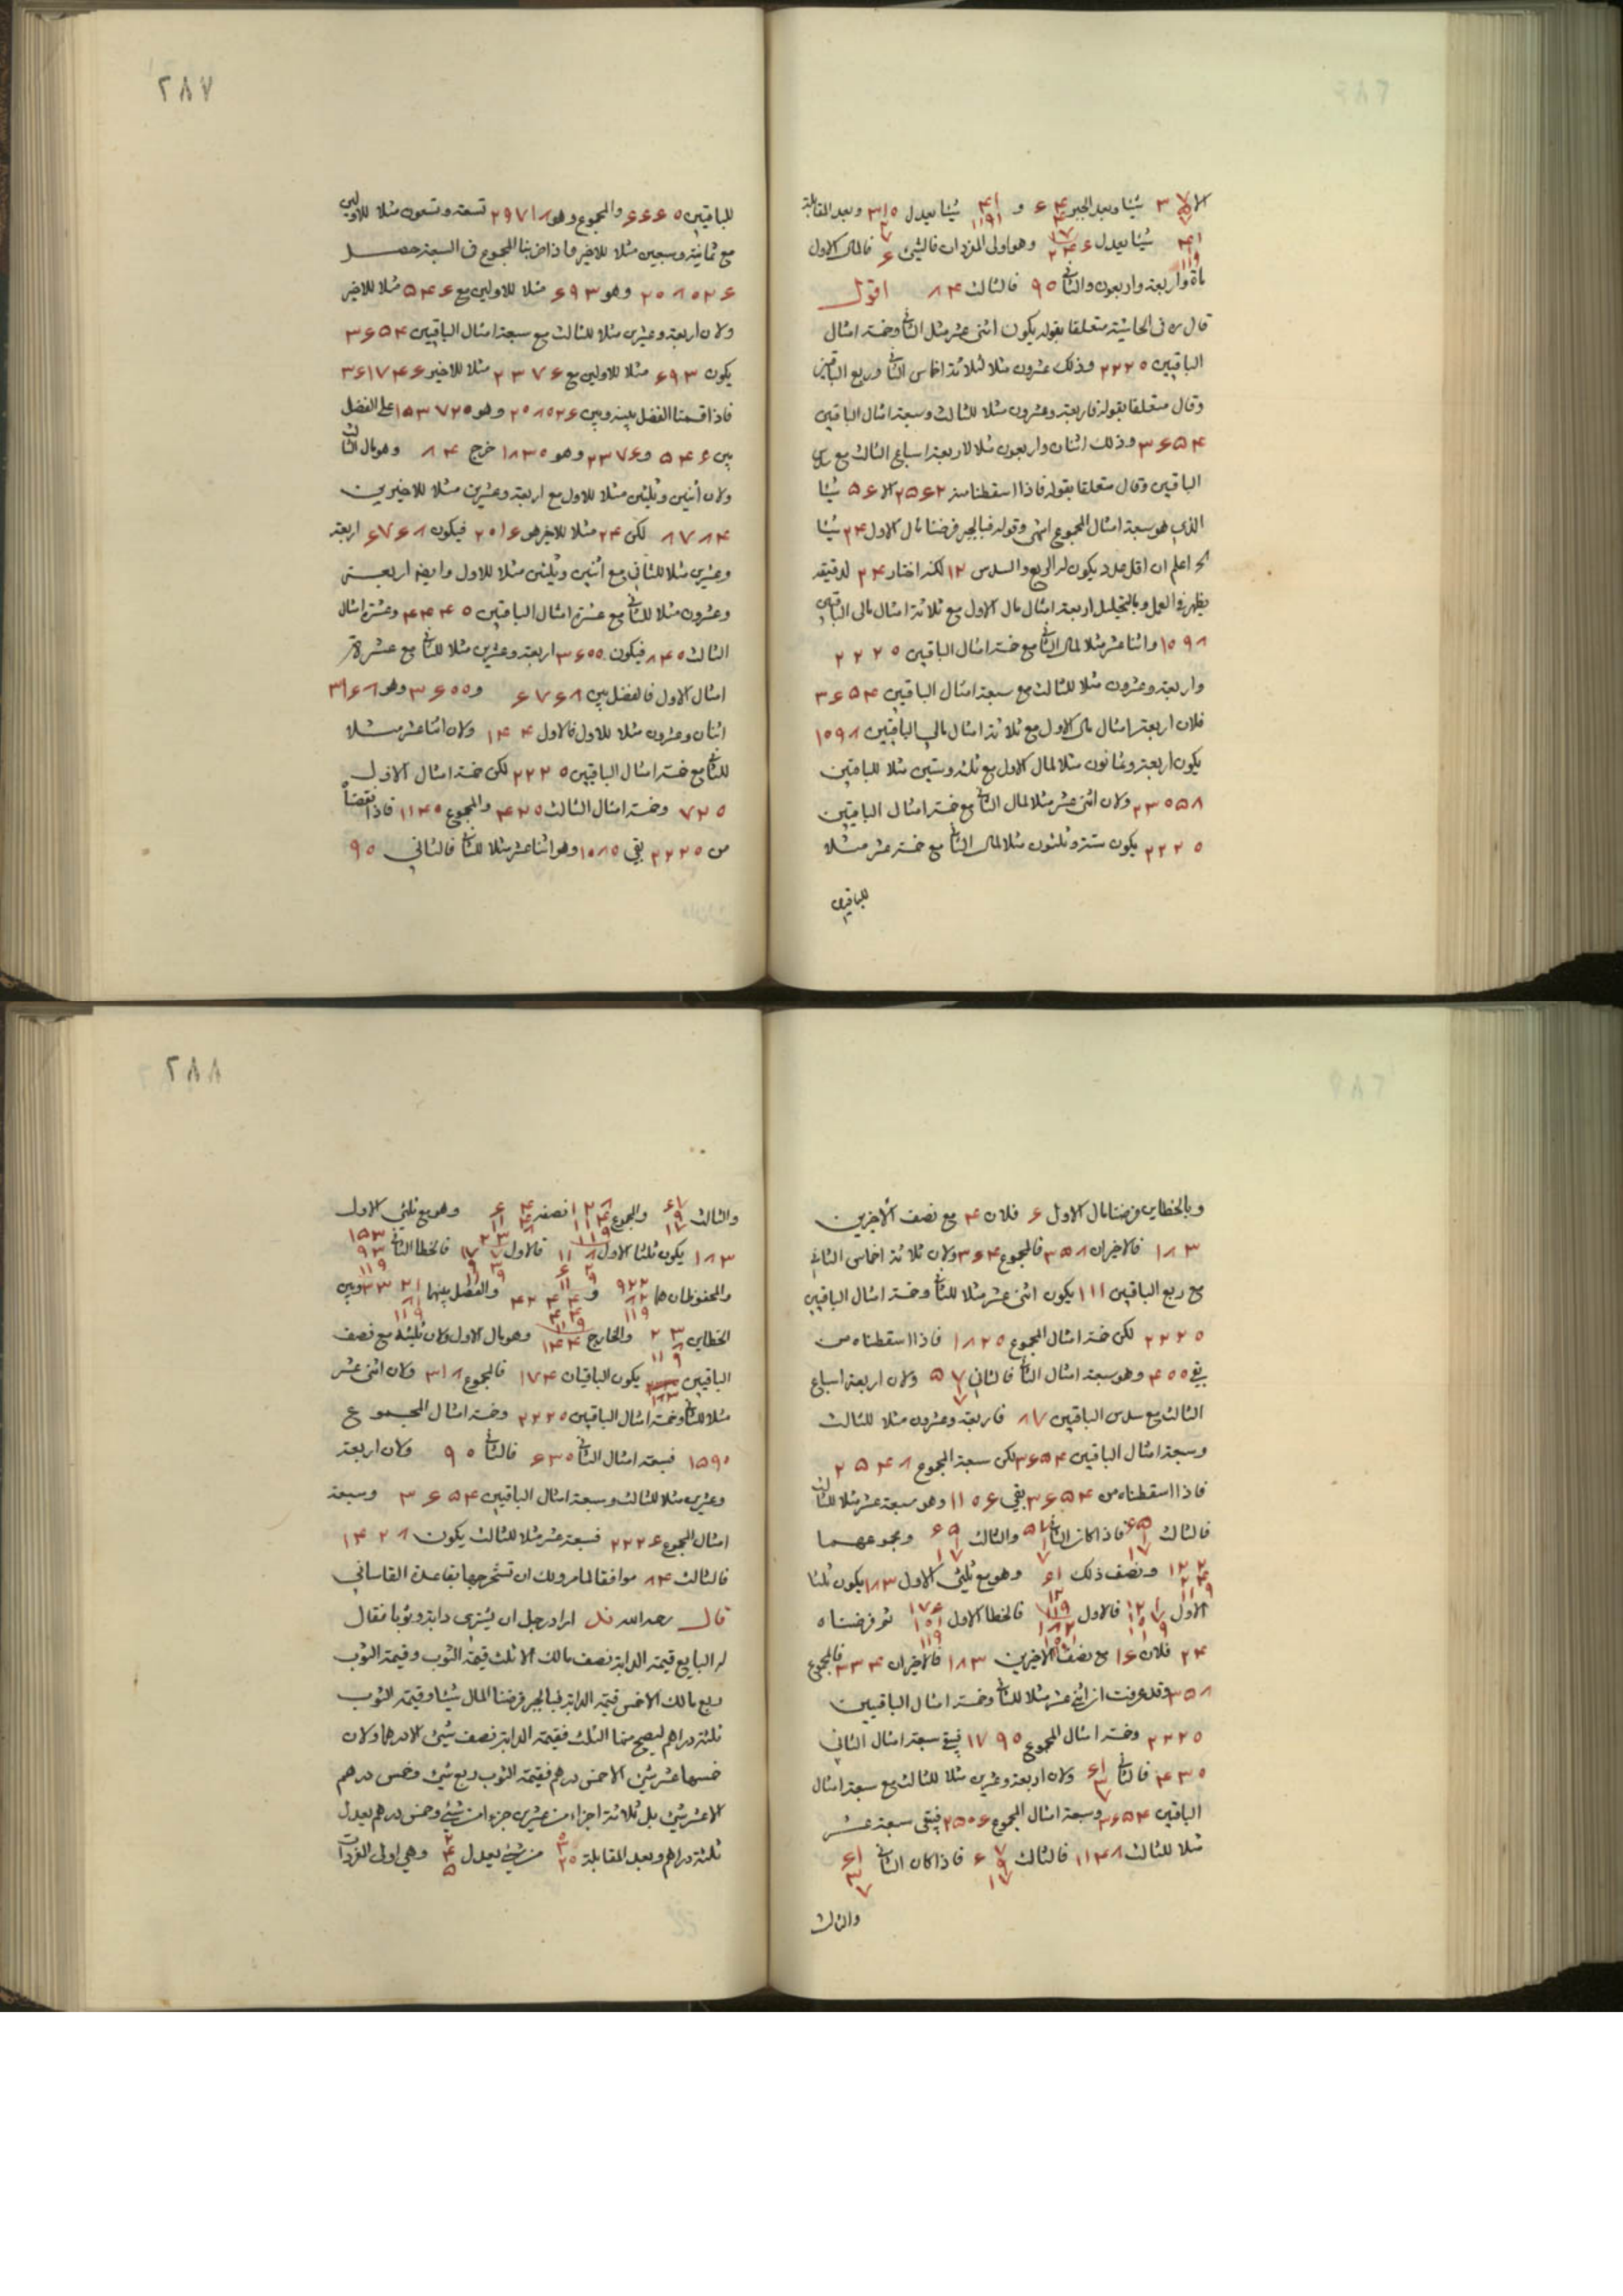 ٢٨٧
شيئا وبعد الجبر ۴ ۶ و شيئا يعدل ٣١٥ وبعد المقابلة
شيئا يعدل وهو اولى المفردات فالشئ ۶ فالمال الاول
مأة واربعة واربعون والثانى ٩٥ فالثالث ٨۴ اقول
قال ره فى الحاشية متعلقا بقوله يكون اثنى عشر مثل الثانى وخمسة امثال
الباقيين ٢٢٢٥ وذلك عشرون مثلا لثلاثة اخماس الثانى وربع الباقيين
وقال متعلقا بقوله فاربعة وعشرون مثلا للثالث وسبعة امثال الباقيين
٣۶۵۴ وذلك اثنان واربعون مثلا لاربعة اسباع الثالث مع سدس
الباقيين وقال متعلقا بقوله فاذا اسقطنا منه ٢۵۶٢ الا ۵۶ شيئا
الذى هو سبعة امثال المجموع انتهى وقوله فبالجبر فرضنا مال الاول ٢۴ شيئا
الخ اعلم ان اقل عدد يكون له الربع والسدس ١٢ لكنه اختار ٢۴ لدقيقة
يظهر فى العمل وبالتحليل اربعة امثال مال الاول مع ثلاثة امثال مالى الباقيين
١٥٩٨ واثنا عشر مثلا لمال الثانى مع خمسة امثال الباقيين ٢٢٢٥
واربعة وعشرون مثلا للثالث مع سبعة امثال الباقيين ٣۶۵۴
فلان اربعة امثال مال الاول مع ثلاثة امثال مالى الباقيين ١٥٩٨
يكون اربعة وثمانون مثلا لمال الاول مع ثلثة وستين مثلا للباقيين
٢٣٥۵٨ ولان اثنى عشر مثلا لمال الثانى مع خمسة امثال الباقيين
٢٢٢٥ يكون ستة وثلثون مثلا لمال الثانى مع خمسة عشر مثلا
للباقيين
للباقيين ۶۶۶٥ والمجموع وهو ٢٩٧١٨ تسعة وتسعون مثلا للاولين
مع ثمانية وسبعين مثلا للاخير فاذا ضربنا المجموع فى السبعة حصل
٢٥٨٥٢۶ وهو ۶٩٣ مثلا للاولين مع ۵۴۶ مثلا للاخير
ولان اربعة وعشرين مثلا للثالث مع سبعة امثال الباقيين ٣۶۵۴
يكون ۶٩٣ مثلا للاولين مع ٢٣٧۶ مثلا للاخير ٣۶١٧۴۶
فاذا قسمنا الفضل بينه وبين ٢٥٨٥٢۶ وهو ١۵٣٧٢٥ على الفضل
بين ۵۴۶ و ٢٣٧۶ وهو ١٨٣٥ خرج ٨۴ وهو مال الثالث
ولان اثنين وثلثين مثلا للاول مع اربعة وعشرين مثلا للاخيرين
٨٧٨۴ لكن ٢۴ مثلا للاخير هو ٢٥١۶ فيكون ۶٧۶٨ اربعة
وعشرين مثلا للثانى مع اثنين وثلثين مثلا للاول وايضا اربعـــة
وعشرون مثلا للثانى مع عشرة امثال الباقيين ۴۴۴٥ وعشرة امثال
الثالث ٨۴٥ فيكون ٣۶٥٥ اربعة وعشرين مثلا للثانى مع عشرة
امثال الاول فالفضل بين ۶٧۶٨ و ٣۶٥٥ وهو ٣١۶٨
اثنان وعشرون مثلا للاول فالاول ١۴۴ ولان اثنا عشر مثلا
للثانى مع خمسة امثال الباقيين ٢٢٢٥ لكن خمسة امثال الاول
٧٢٥ وخمسة امثال الثالث ۴٢٥ والمجموع ١١۴٥ فاذا نقصناه
من ٢٢٢٥ بقى ١٥٨٥ وهو اثنا عشر مثلا للثانى فالثانى ٩٥
٢٨٨
وبالخطاين فرضنا مال الاول ۶ فلان ۴ مع نصف الآخرين
١٨٣ فالاخيران ٣۵٨ فالمجموع ٣۶۴ ولان ثلاثة اخماس الثانى
مع ربع الباقيين ١١١ يكون اثنى عشر مثلا للثانى وخمسة امثال الباقيين
٢٢٢٥ لكن خمسة امثال المجموع ١٨٢٥ فاذا اسقطناه من
بقى ۴٥٥ وهو سبعة امثال الثانى فالثانى ۵٧ ولان اربعة اسباع
الثالث مع سدس الباقيين ٨٧ فاربعة وعشرون مثلا للثالث
وسبعة امثال الباقيين ٣۶۵۴ لكن سبعة المجموع ٢۵۴٨
فاذا اسقطناه من ٣۶۵۴ بقى ١١٥۶ وهو سبعة عشر مثلا للثالث
فالثالث فاذا كان الثانى والثالث ومجموعهما
ونصف ذلك وهو مع ثلثى الاول ١٨٣ يكون ثلثا
الاول فالاول فالخطا الاول ثم فرضناه
٢۴ فلان ١۶ مع نصف الآخرين ١٨٣ فالاخيران ٣٣۴ فالمجموع
٣۵٨ وقد عرفت ان اثنى عشر مثلا للثانى وخمسة امثال الباقيين
٢٢٢٥ وخمسة امثال المجموع ١٧٩٥ فبقى سبعة امثال الثانى
۴٣٥ فالثانى ولان اربعة وعشرين مثلا للثالث مع سبعة امثال
الباقيين ٣۶۵۴ وسبعة امثال المجموع ٢۵٥۶ فيبقى سبعة عشر
مثلا للثالث ١١۴٨ فالثالث فاذا كان الثانى
والثالث
والثالث والمجموع نصفه وهو مع ثلثى الاول
١٨٣ يكون ثلثا الاول فالاول فالخطا الثانى
والمحفوظان هما و والفضل بينهما وبين
الخطاين والخارج ١۴۴ وهو مال الاول ولان ثلثيه مع نصف
الباقيين ١٨٣ يكون الباقيان ١٧۴ فالمجموع ٣١٨ ولان اثنى عشر
مثلا للثانى وخمسة امثال الباقيين ٢٢٢٥ وخمسة امثال المجموع
١۵٩٠ فسبعة امثال الثانى ۶٣٥ فالثانى ٩٥ ولان اربعة
وعشرين مثلا للثالث وسبعة امثال الباقيين ٣۶۵۴ وسبعة
امثال المجموع ٢٢٢۶ فسبعة عشر مثلا للثالث يكون ١۴٢٨
فالثالث ٨۴ موافقا لما مر ولك ان تستخرجها بقاعدة القاسانى
قال رحمه الله اراد رجل ان يشترى دابة وثوبا فقال
له البايع قيمة الدابة نصف مالك الا ثلث قيمة الثوب وقيمة الثوب
ربع مالك الا خمس قيمة الدابة فبالجبر فرضنا المال شيئا وقيمة الثوب
ثلثة دراهم ليصح منها الثلث فقيمة الدابة نصف شئ الا درهما ولان
خمسها عشر شئ الا خمس درهم فقيمة الثوب ربع شئ وخمس درهم
الا عشر شئ بل ثلاثة اجزاء من عشرين جزءا من شئ وخمس درهم يعدل
ثلثة دراهم وبعد المقابلة من شئ يعدل وهى اولى المفردات